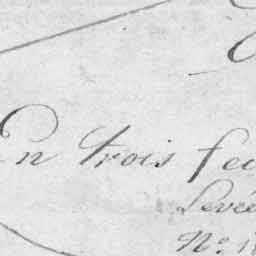 En trois feu
Levée
No. 1